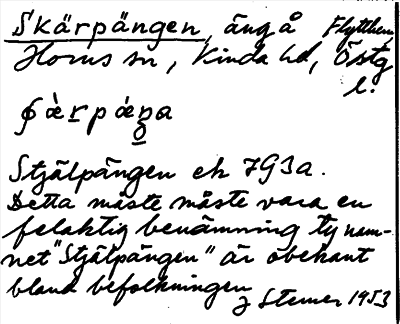 Skärpängen, äng å Flytthem,
Horns sn, Kinda hd, Östg
l.
ʃæ̀rpáŋa
Stjälpängen ek 7G3a.
Detta måste måste vara en
felaktig benämning ty nam-
net "Stjälpängen" är obekant
bland befolkningen
J Stenner 1953